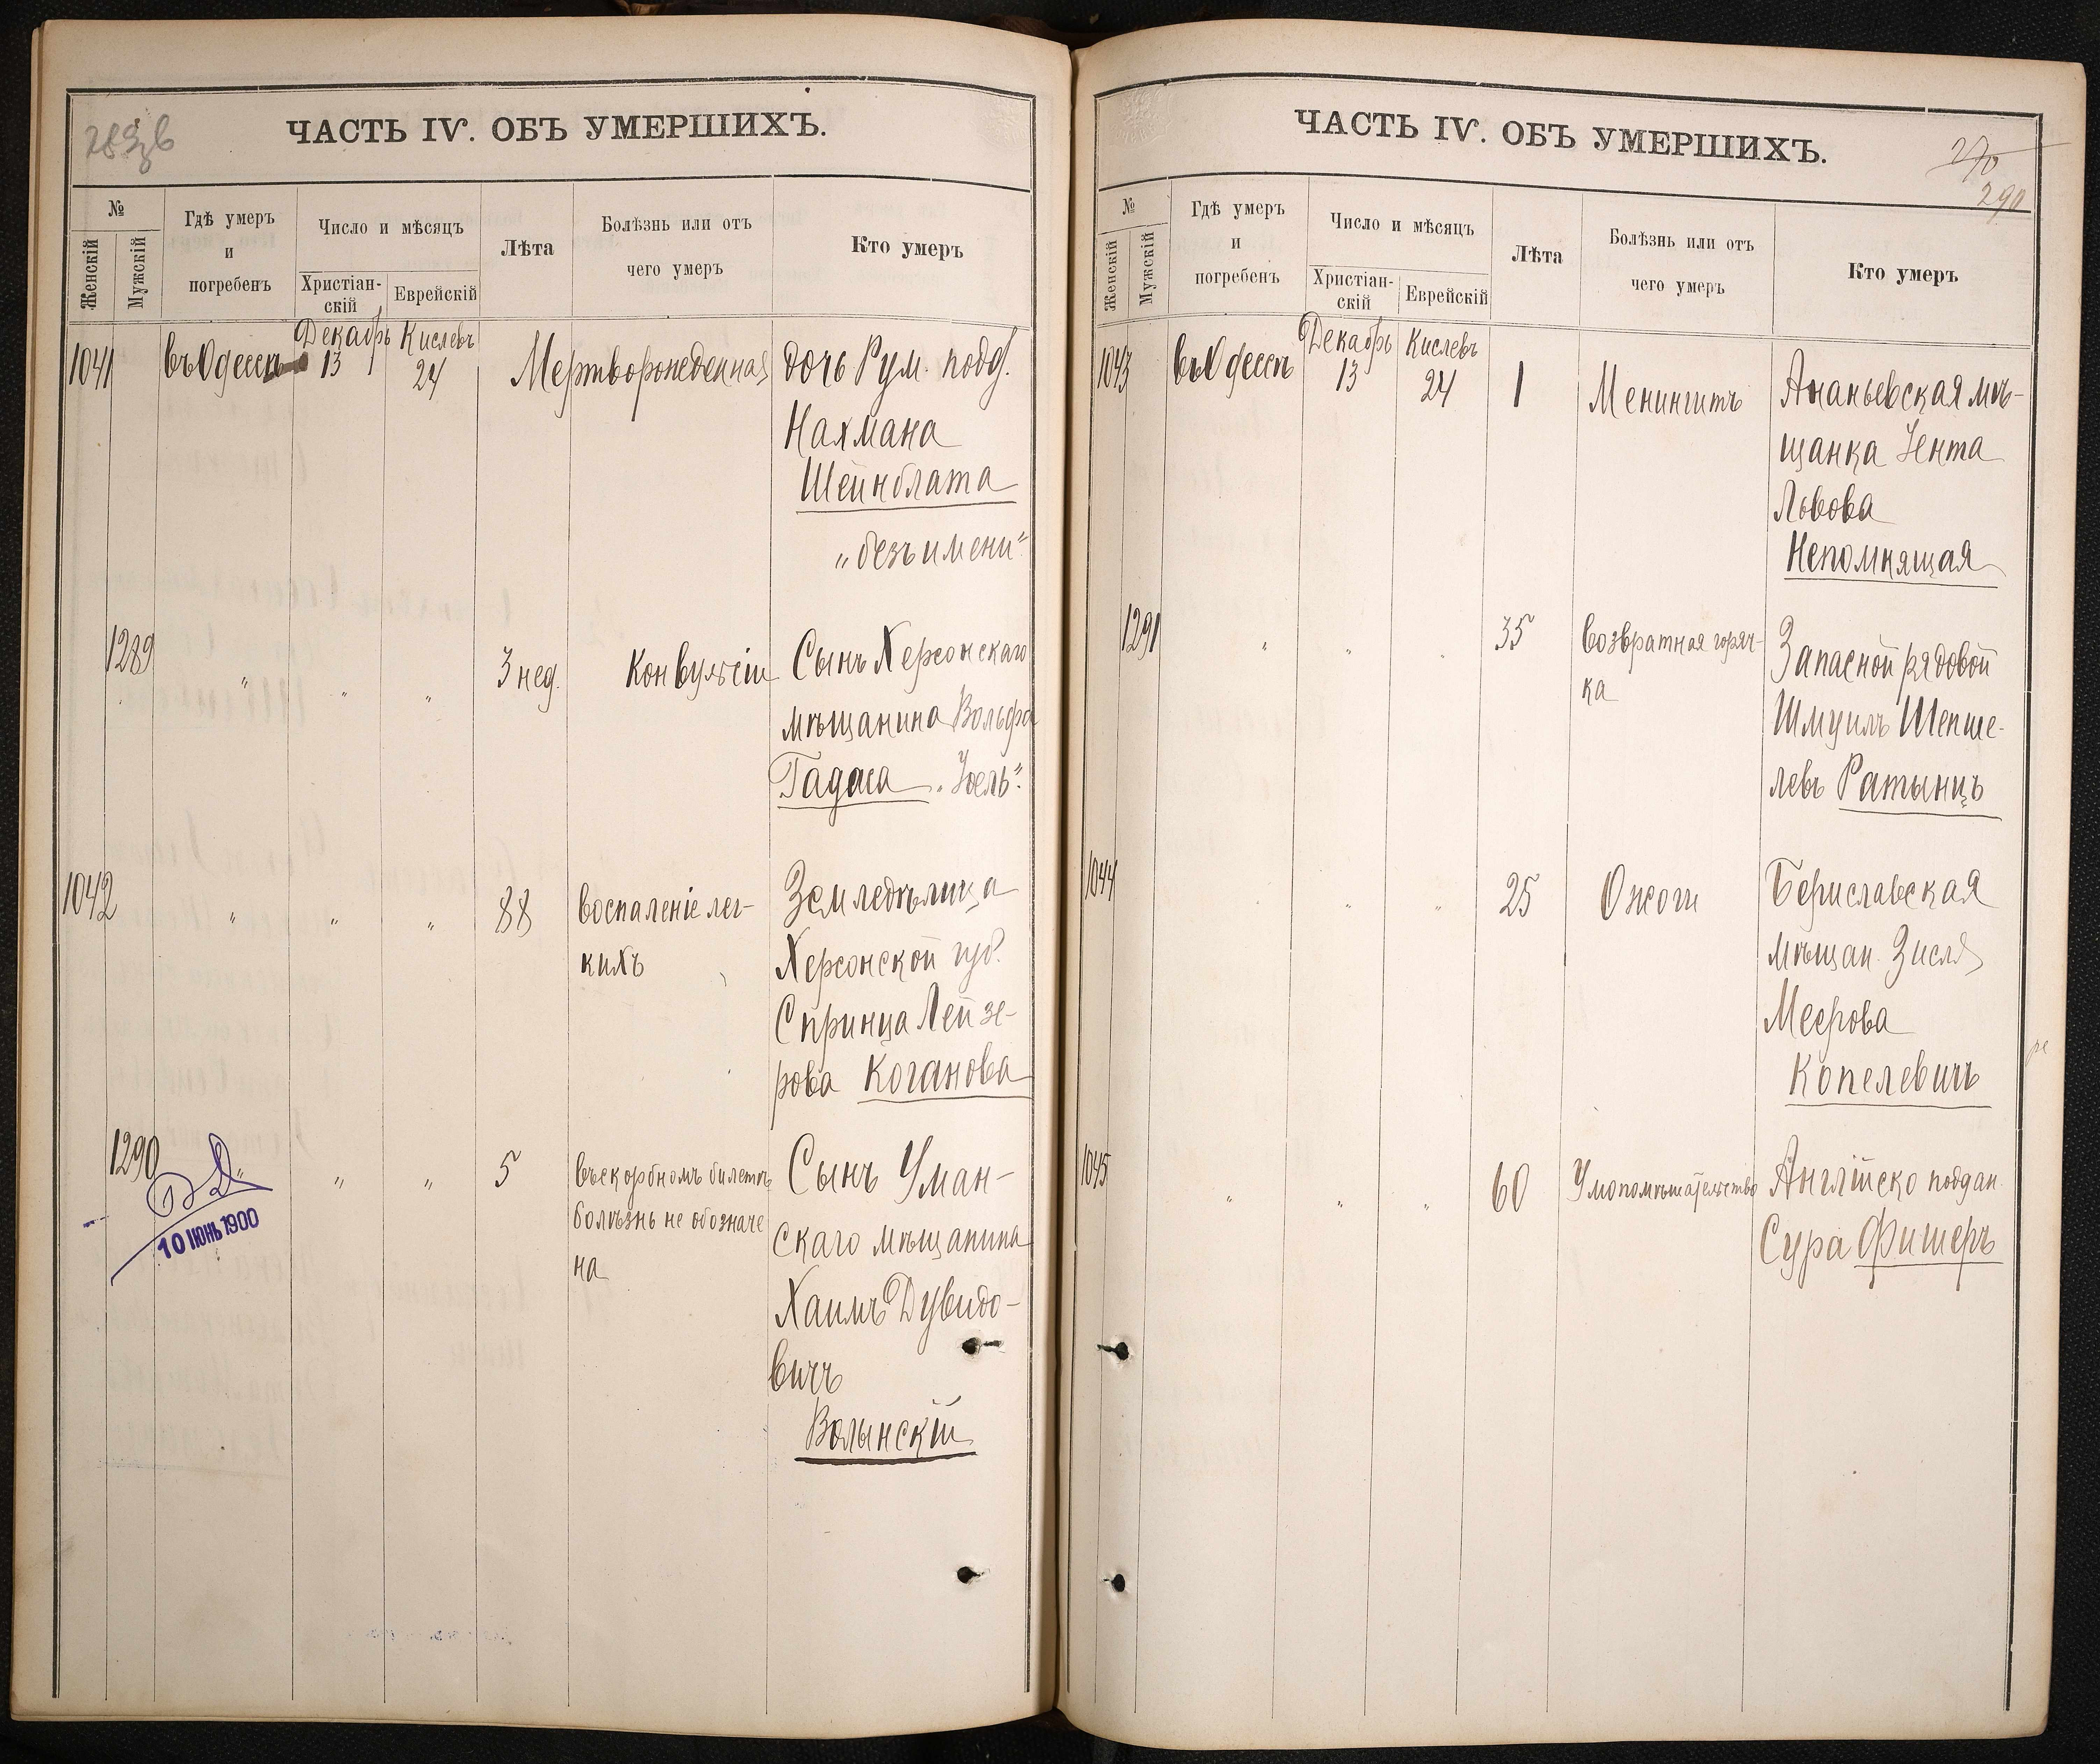 289 об
ЧАСТЬ IV. ОБЪ УМЕРШИХЪ.
№
Женскій
Мужскій
Гдѣ умеръ
и
погребенъ
Число и мѣсяцъ
Христіан-
скій
Еврейскій
Лѣта
Болѣзнь или отъ
чего умеръ
Кто умеръ
1041 въ Одессѣ Декабрь 13 Кислевъ 24 Мертворожденная дочь Рум. подд.
Нахмана
Шейнблата
„безъ имени“
1289 " " " 3 нед. Конвульсіи Сынъ Херсонскаго
мѣщанина Вольфа
Гадаса „Іоель“
1042 " " " 88 воспаленіе лег- Земледѣлица
кихъ Херсонской губ.
Спринца Лейзе-
рова Коганова
1290 " " " 5 въ скорбномъ билетѣ Сынъ Уман-
болѣзнь не обозначе скаго мѣщанина
на Хаимъ Дувидо-
вичъ
Волынскій
10 ІЮНЬ 1900
ЧАСТЬ IV. ОБЪ УМЕРШИХЪ.
270
290
№
Женскій
Мужскій
Гдѣ умеръ
и
погребенъ
Число и мѣсяцъ
Христіан-
скій
Еврейскій
Лѣта
Болѣзнь или отъ
чего умеръ
Кто умеръ
1043 въ Одессѣ Декабрь 13 Кислевъ 24 1 Менингитъ Ананьевская мѣ-
щанка Іента
Львова
Непомнящая
1291 " " " 35 возвратная горяч- Запасной рядовой
ка Шмуилъ Шепше-
левъ Ратынцъ
1044 " " 25 Ожоги Бериславская
мѣщан. Зисля
Меерова
Копелевичъ
1045 " " " 60 Умопомѣшательство Англійско поддан.
Сура Фишеръ